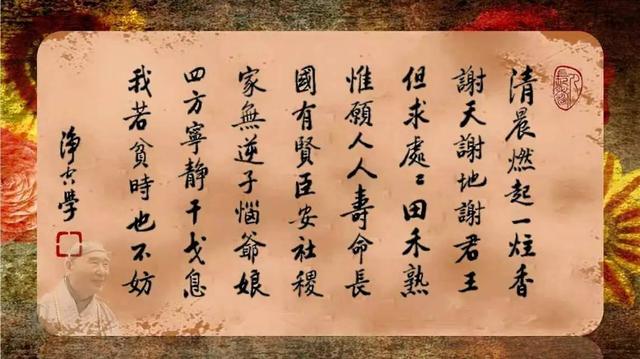 清晨燃起一炷香
謝天謝地謝君王
但求處〻田禾熟
惟願人人壽命長
國有賢臣安社稷
家無逆子惱爺娘
四方寧靜干戈息
我若貧時也不妨
淨空學